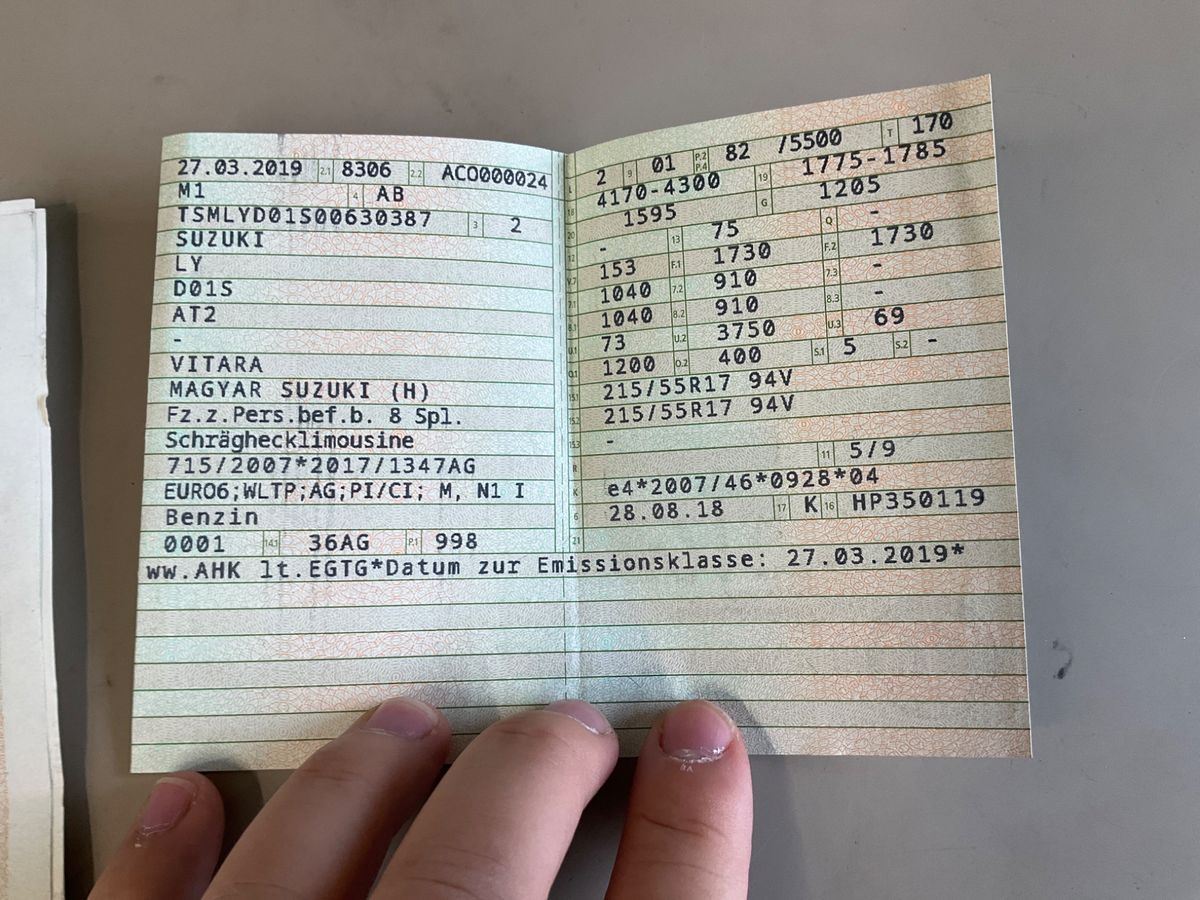 27.03.2019 2.1 8306 2.2 ACO000024
M1 4 AB
TSMLYD01S00630387 3 2
SUZUKI
LY
D01S
AT2
-
VITARA
MAGYAR SUZUKI (H)
Fz.z.Pers.bef.b. 8 Spl.
Schräghecklimousine
715/2007*2017/1347AG
EURO6;WLTP;AG;PI/CI; M, N1 I
Benzin
0001 14.1 36AG P.1 998
L 2 9 01 P.2 P.4 82 /5500 T 170
18 4170-4300 19 1775-1785
20 1595 G 1205
12 - 13 75 Q -
V.7 153 F.1 1730 F.2 1730
7.1 1040 7.2 910 7.3 -
8.1 1040 8.2 910 8.3 -
U.1 73 U.2 3750 U.3 69
O.1 1200 O.2 400 S.1 5 S.2 -
15.1 215/55R17 94V
15.2 215/55R17 94V
15.3 -
R 11 5/9
K e4*2007/46*0928*04
6 28.08.18 17 K 16 HP350119
21
ww.AHK lt.EGTG*Datum zur Emissionsklasse: 27.03.2019*